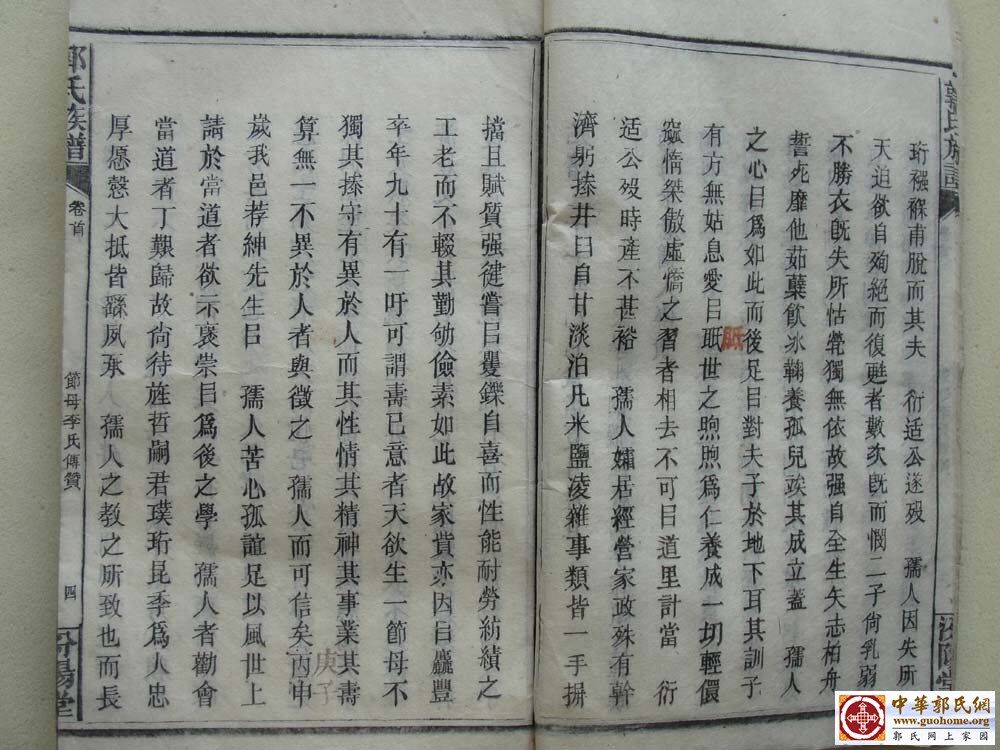 珩襁褓甫脫而其夫　衍适公遂歿　孺人因失所
天迫欲自殉絕而復甦者數次既而憫二子尙乳弱
不勝衣既失所怙煢獨無依故强自全生矢志柏舟
誓死靡他茹蘗飮冰鞠養孤兒竢其成立蓋　孺人
之心目爲如此而後足㠯對夫子於地下耳其訓子
有方無姑息愛㠯眡世之煦煦爲仁養成一切輕儇
窳惰桀傲虛憍之習者相去不可㠯道里計當　衍
适公歿時產不甚裕　孺人孀居經營家政殊有幹
濟躬操井臼自甘淡泊凡米鹽凌雜事類皆一手摒
擋且賦質强健嘗㠯矍鑠自喜而性能耐勞紡績之
工老而不輟其勤劬儉素如此故家貲亦因㠯麤豐
卒年九十有一吁可謂壽已意者天欲生一節母不
獨其操守有異於人而其性情其精神其事業其壽
算無一不異於人者與徵之　孺人而可信矣丙申
庚子
歲我邑荐紳先生㠯　孺人苦心孤誼足以風世上
請於當道者欲示褒崇㠯爲後之學　孺人者勸會
當道者丁艱歸故尙待旌哲嗣君璞珩昆季爲人忠
厚愿慤大抵皆繇夙承　孺人之教之所致也而長
郭氏族譜
卷首
節母李氏傳贊
四
汾陽堂
中華郭氏網
www.guohome.org
郭氏网上家园